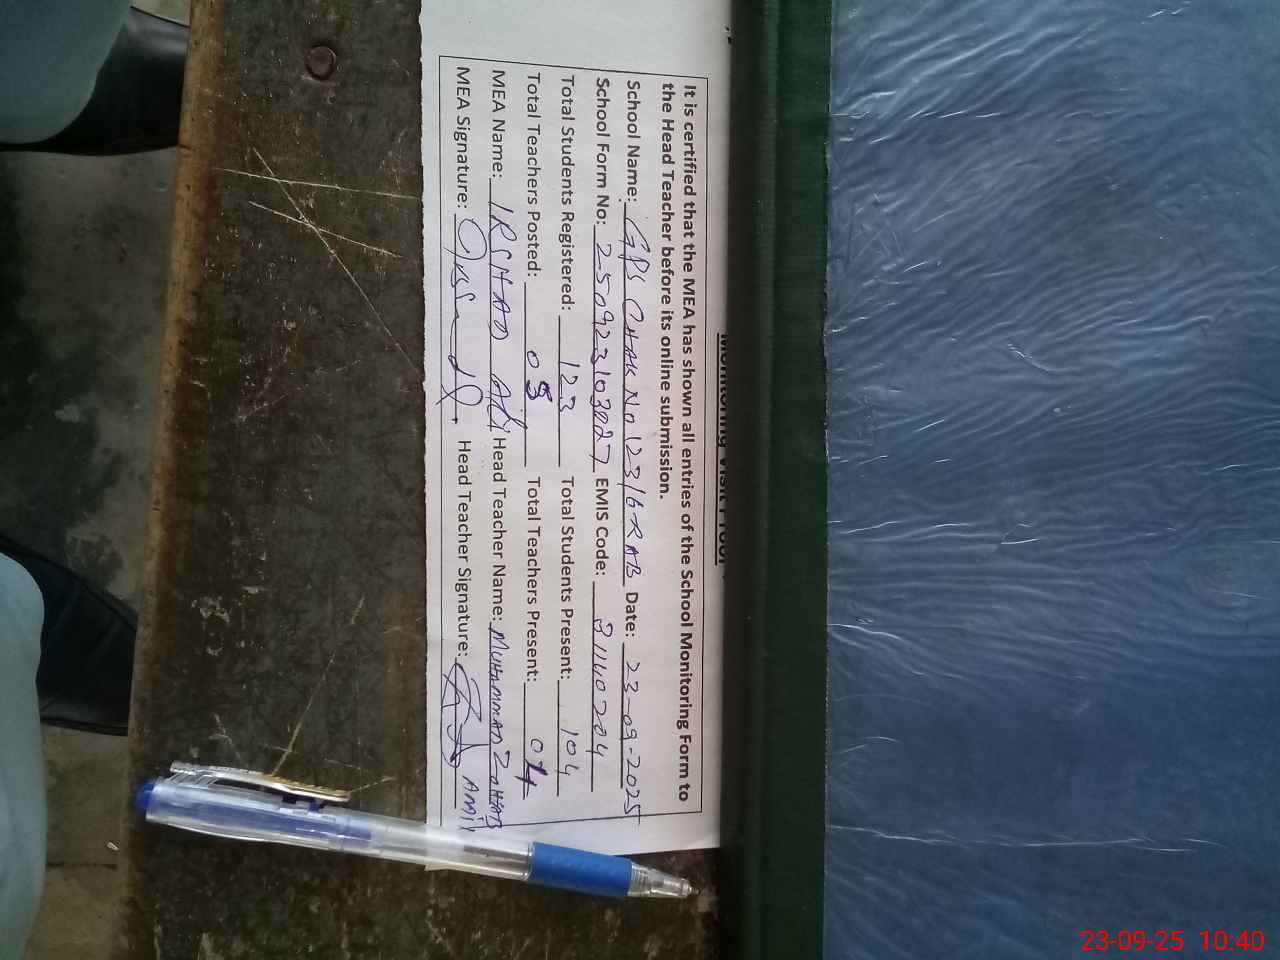 Monitoring Visit Proof
It is certified that the MEA has shown all entries of the School Monitoring Form to
the Head Teacher before its online submission.
School Name: GPS CHAK No 123/6-R AB Date: 23-09-2025
School Form No: 250923103027 EMIS Code: 31140204
Total Students Registered: 123 Total Students Present: 104
Total Teachers Posted: 05 Total Teachers Present: 04
MEA Name: IRSHAD Ali Head Teacher Name: MUHAMMAD ZOHAIB
MEA Signature: Head Teacher Signature: AAMIR
23-09-25 10:40